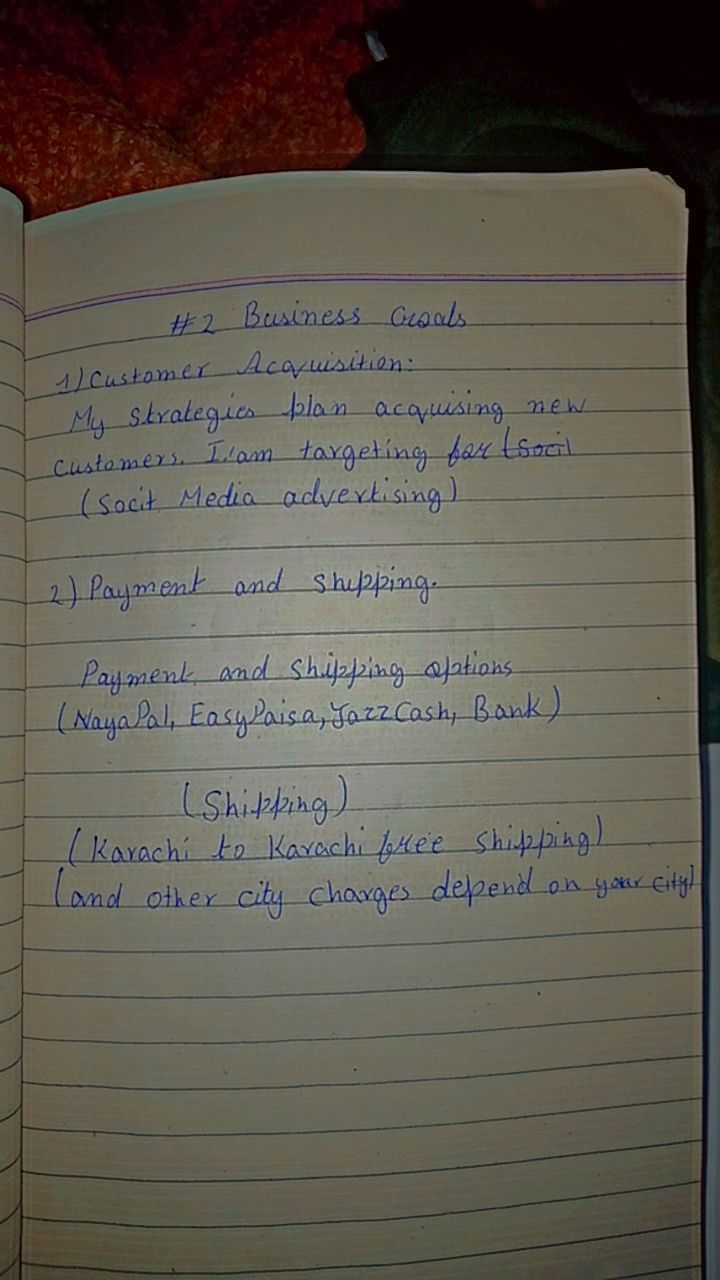 #2 Business Goals
1) Customer Acquisition:
My strategies plan acquising new
customers. I'am targeting for (Socil
(Socit Media advertising)
2) Payment and Shipping.
Payment and shipping options
(NayaPal, EasyPaisa, JazzCash, Bank)
(Shipping)
(Karachi to Karachi free shipping)
(and other city charges depend on your city)